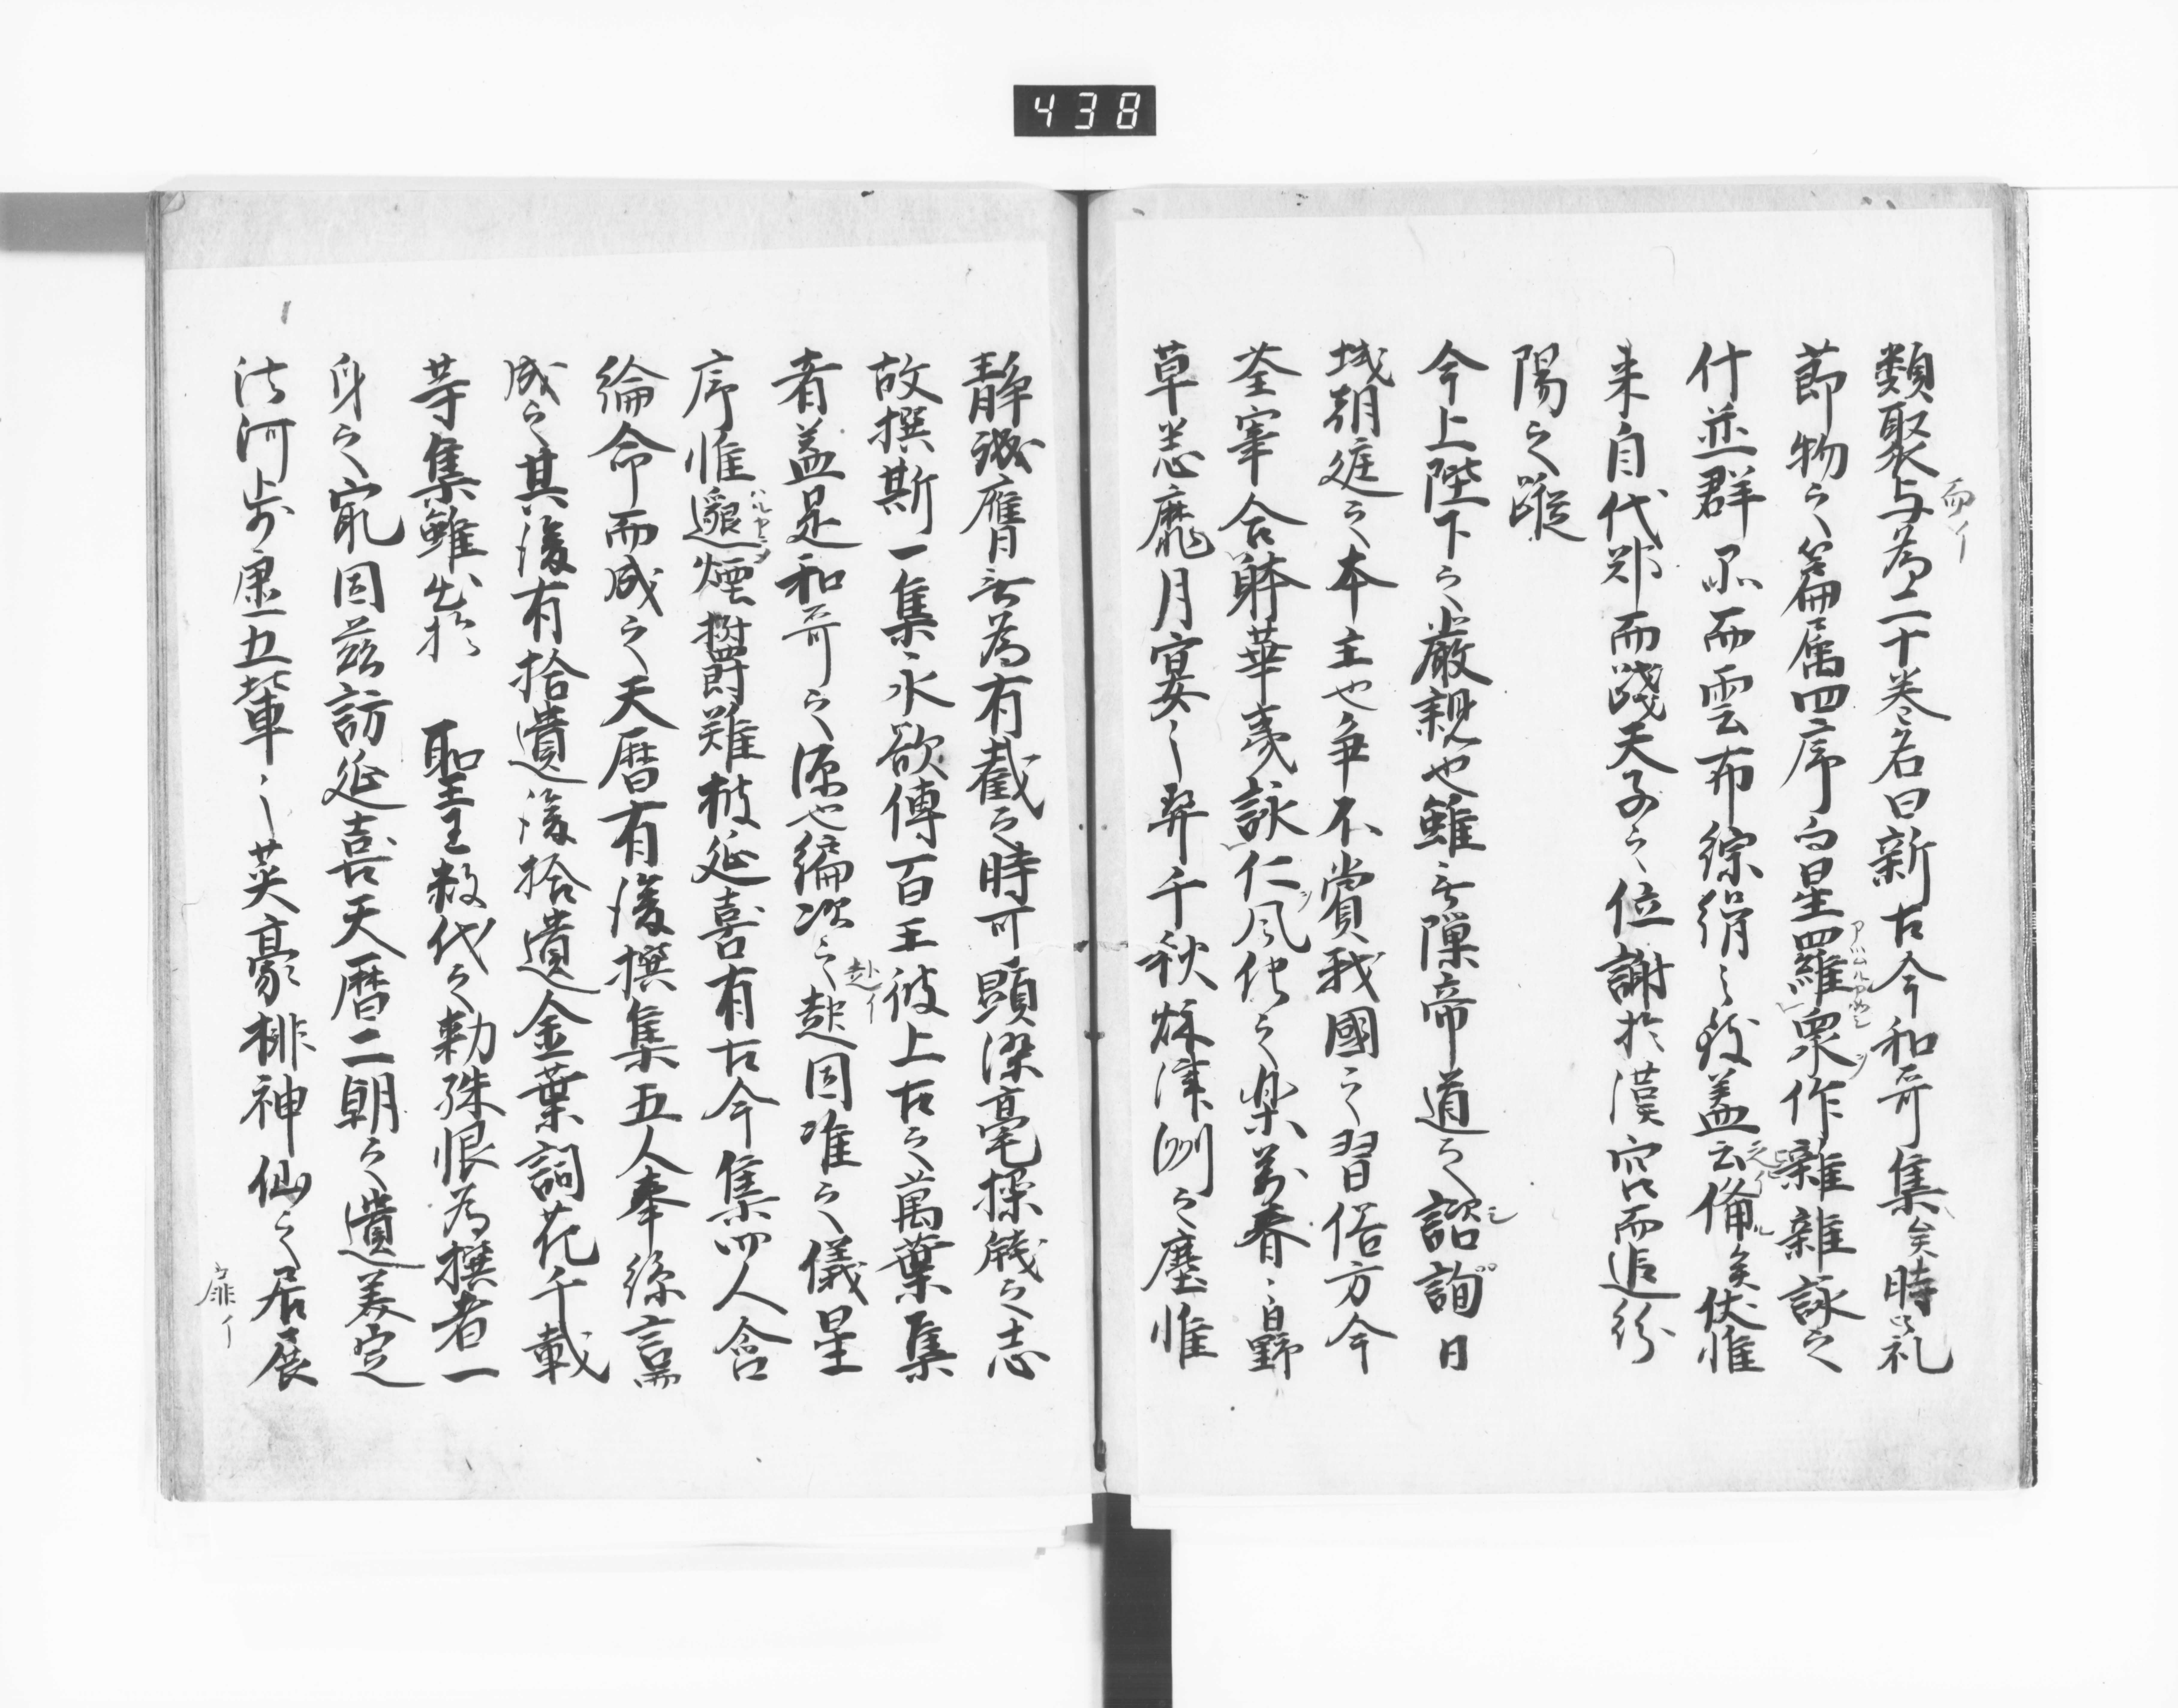 438
類聚与為二十巻名曰新古今和哥集矣時令
而イ
節物之篇属四序而星羅衆作雜雜詠之
什並群品而雲布綜緝之致蓋云備矣伏惟
来自代邸而踐天子之位謝於漢宮而追汾
陽之蹤
今上陛下之厳親也雖無隙帝道之諮詢日
域朝廷之本主也争不賞我國之習俗方今
荃宰合躰華夷詠仁風化之楽萬春春日野
草悉靡月宴之契千秋秋津洲之塵惟
静誠膺無為有截之時可顕染毫操牋之志
故撰斯一集永欲傳百王彼上古之萬葉集
者蓋是和哥之源也編次之起因准之儀星
赴イ
序惟邈煙欝難披延喜有古今集四人含
綸命而成之天暦有後撰集五人奉絲言
成之其後有拾遺後拾遺金葉詞花千載
等集雖出於 聖王数代之勅殊恨為撰者一
身之最因茲訪延喜天暦二朝之遺美定
法河歩虚五輩之英豪排神仙之居展
扉イ